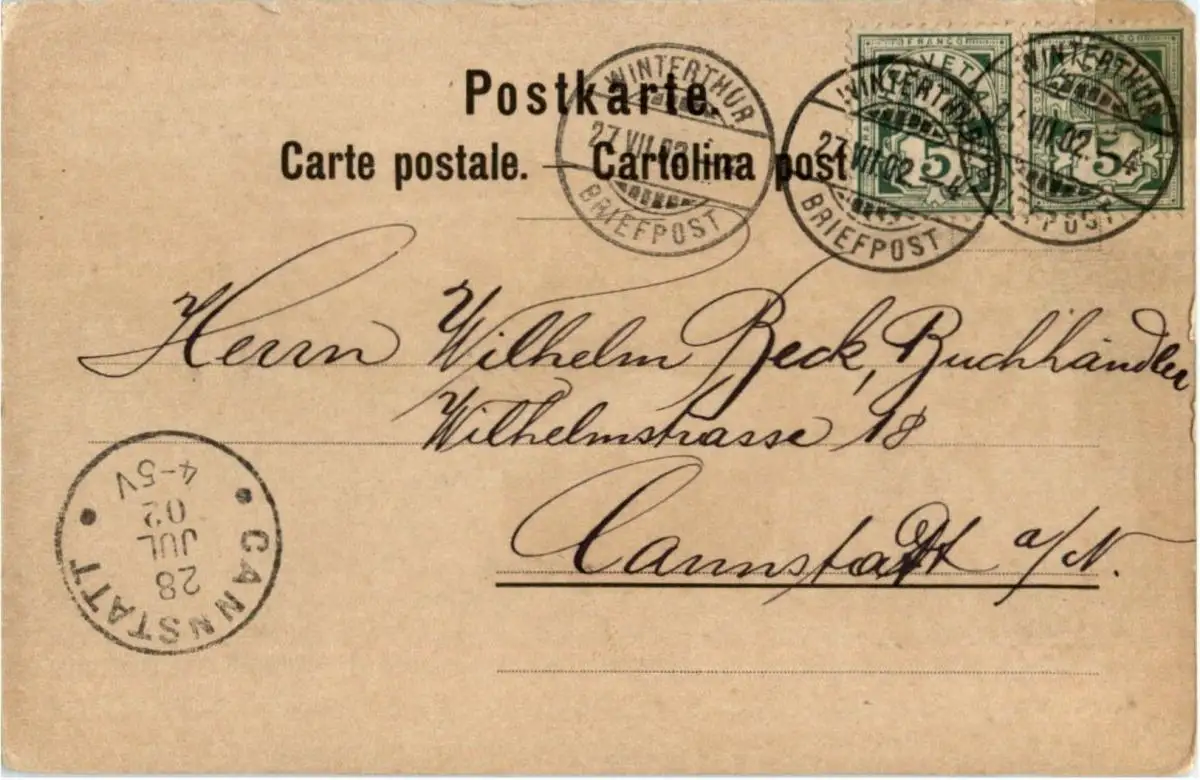 Postkarte.
Carte postale. — Cartolina post
WINTERTHUR
27.VII.02.
BRIEFPOST
FRANCO
HELVETIA
WINTERTHUR
27.VII.02. - 4
BRIEFPOST
5
WINTERTHUR
VII.02. - 4
POST
5
Herrn Wilhelm Beck, Buchhändler
Wilhelmstrasse 18
Cannstatt a/N.
CANNSTATT
28
JUL
02
4-5V